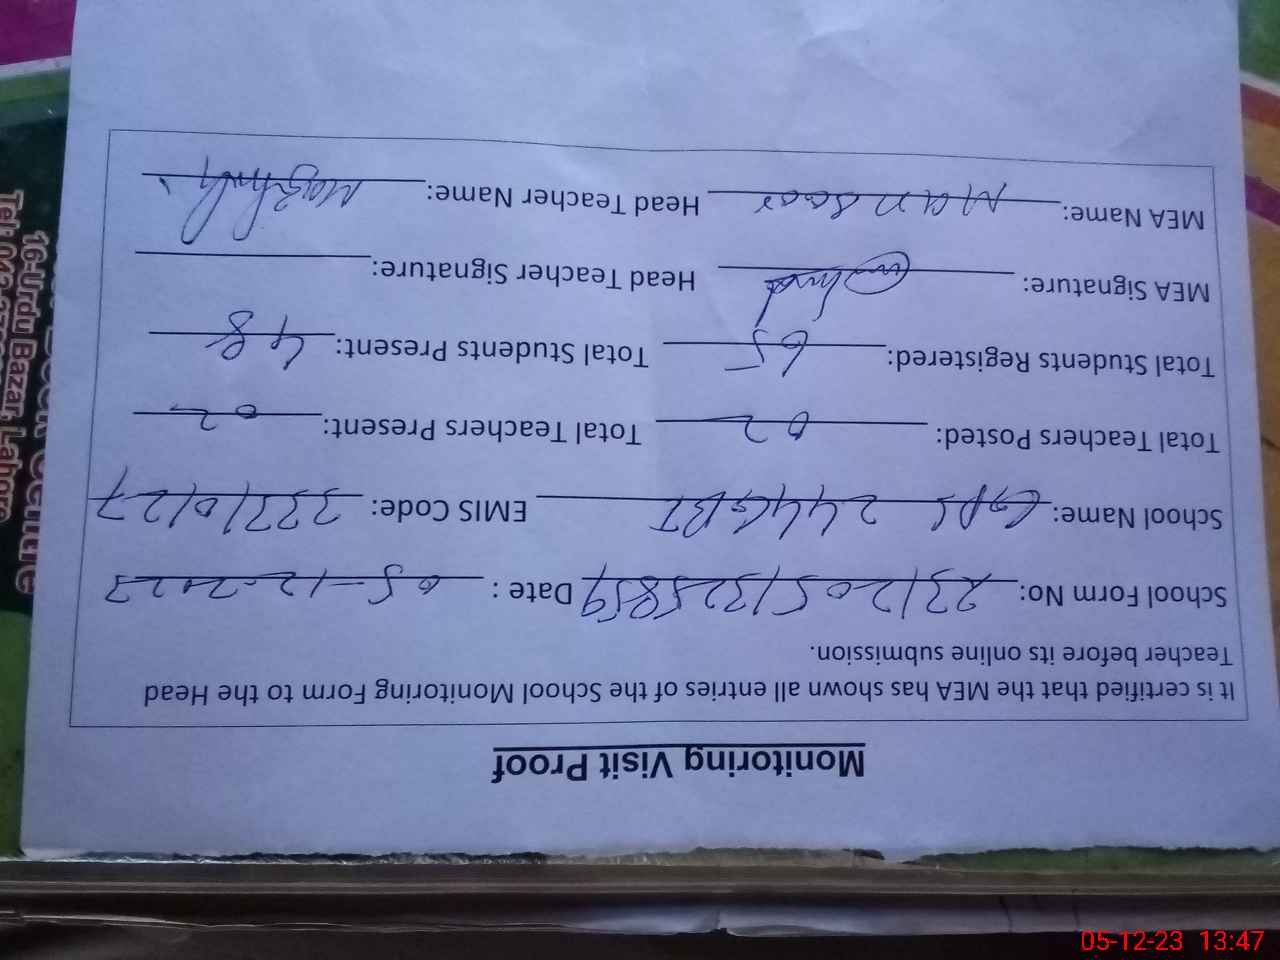 Monitoring Visit Proof
It is certified that the MEA has shown all entries of the School Monitoring Form to the Head
Teacher before its online submission.
School Form No: 231205132585 Date : 05-12-2023
School Name: GPS 244GBI EMIS Code: 33310127
Total Teachers Posted: 02 Total Teachers Present: 02
Total Students Registered: 65 Total Students Present: 48
MEA Signature: Head Teacher Signature:
MEA Name: Mansoor Head Teacher Name:
16-Urdu Bazar, Lahore
05-12-23 13:47